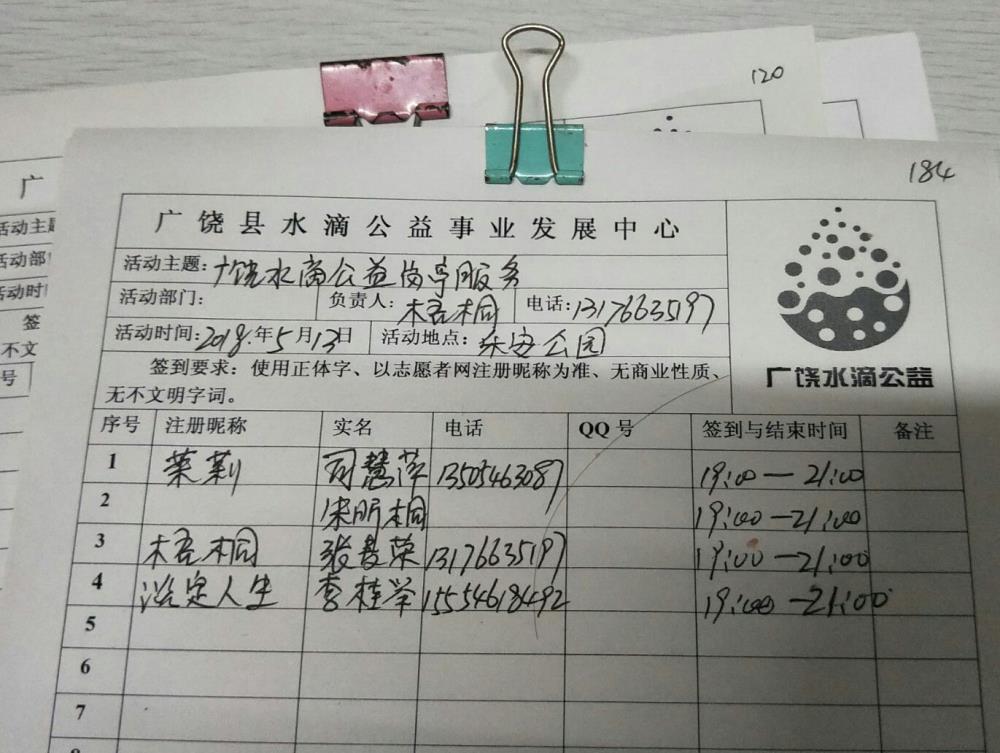 120
184
广
活动主题
活动部
活动时
签
不文
号
广饶县水滴公益事业发展中心
活动主题:广饶水滴公益岗亭服务
活动部门: 负责人:梧桐 电话:13176635197
活动时间:2018.年5月13日 活动地点:乐安公园
签到要求:使用正体字、以志愿者网注册昵称为准、无商业性质、
无不文明字词。
广饶水滴公益
序号 注册昵称 实名 电话 QQ号 签到与结束时间 备注
1 茉莉 司慧萍 13505463087 19:00—21:00
2 宋昕桐 19:00—21:00
3 梧桐 张爱荣 13176635197 19:00—21:00
4 淡定人生 李桂举 15554618492 19:00—21:00
5
6
7